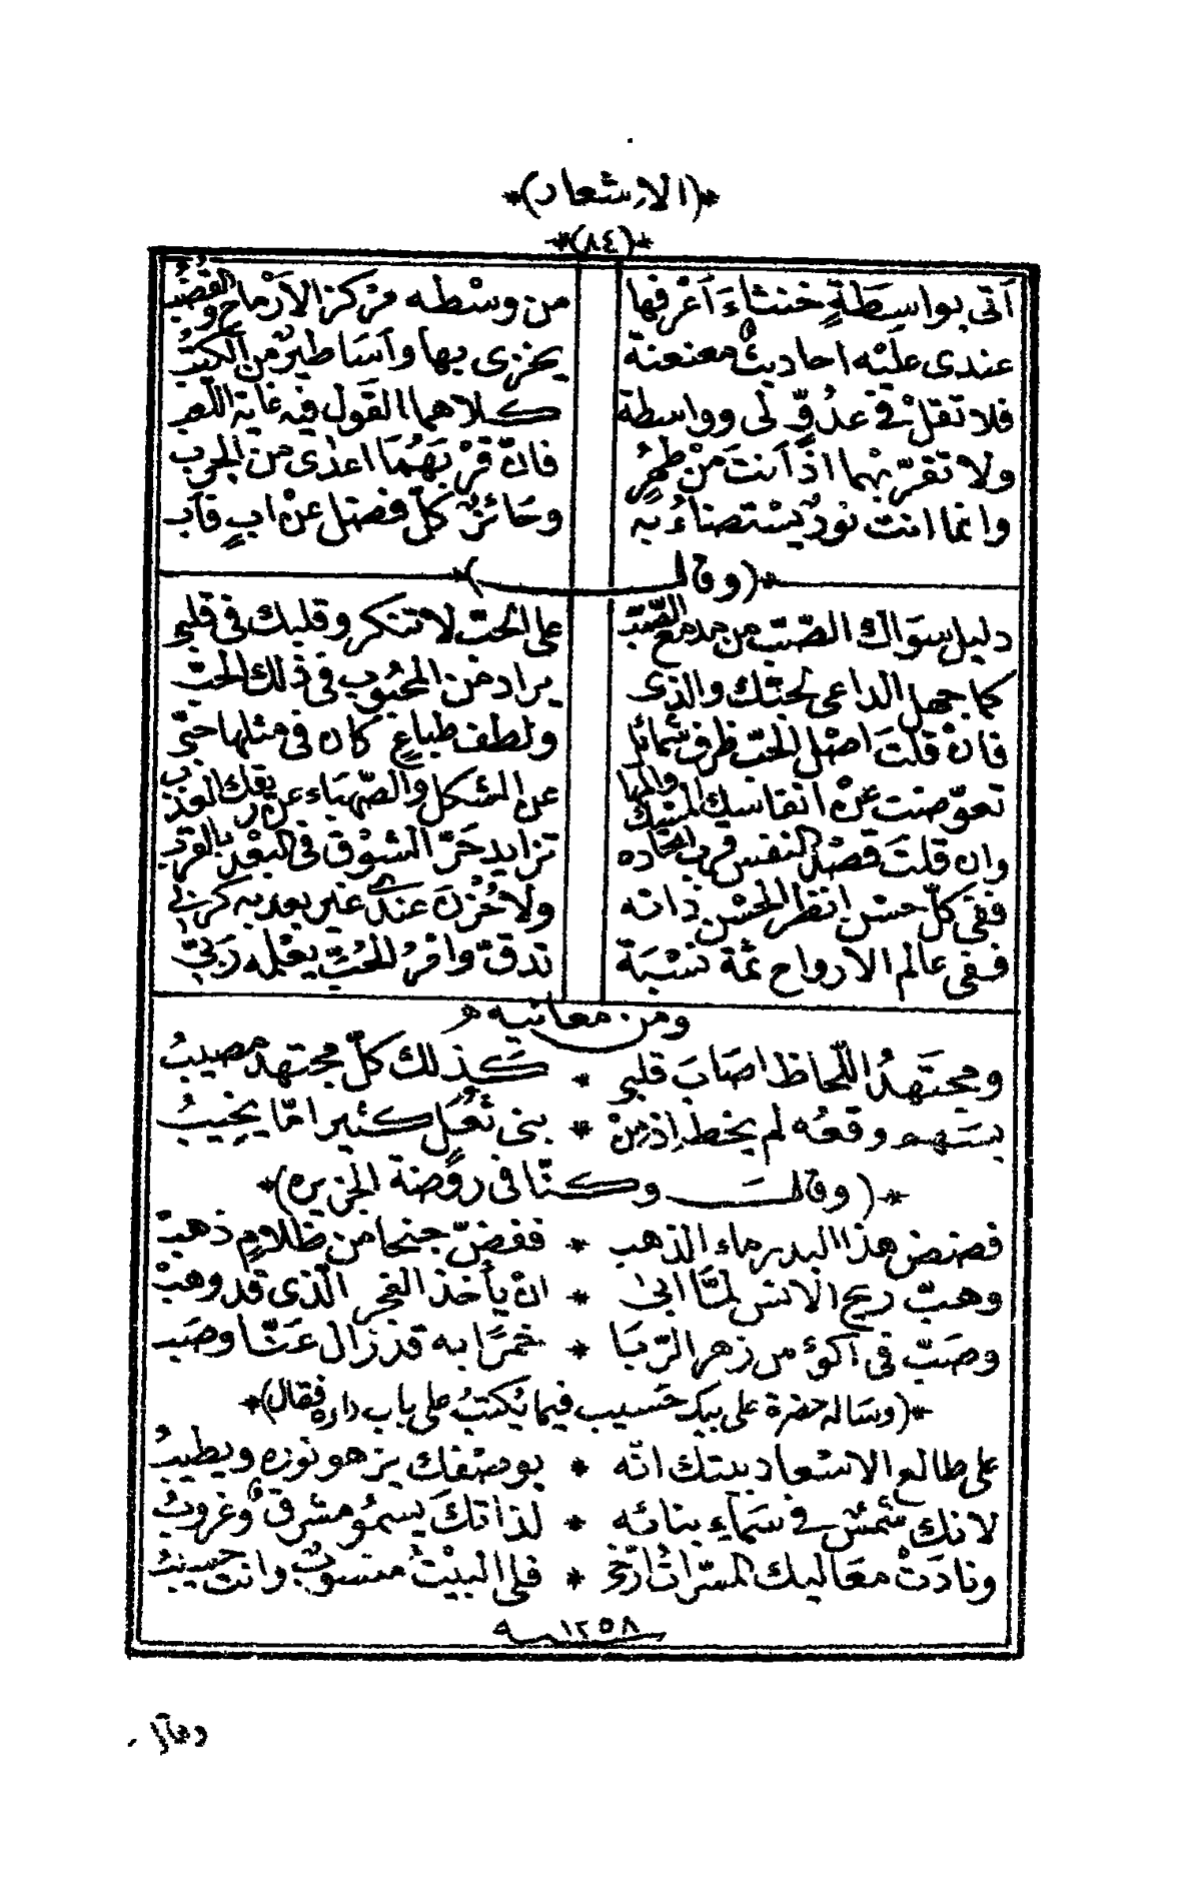 *(الاشعار)*
*(٨٤)*
أتى بواسِطَةٍ خنثاءَ أعرفها من وسْطه مركز الأرماح والقضُبُ
عندى علَيْه احاديثٌ معنعنة يخزى بها وأسَاطيرٌ من الكتبُ
فلا تقلْ فى عدُوٍّ لى وواسطة كلاهما القول فيه غاية اللعب
ولا تقرّبهما اذًا أنتَ منْ طهُرٍ فانّ قرْبَهُمَا اعدٰى من الجرب
وانما انت نورٌ يسْتضاءُ به وحَائزٌ كلّ فضل عنْ ابٍ فأب
*(وقال)*
دليل سوَاك الصّبّ من مدمع الصّبّ على الحبّ لا تنكر وقلبك فى قلبى
كما جهل الداعى لحبّك والذى يراد من المحبُوب فى ذلك الحبّ
فانْ قلتَ اصْل الحبّ ظرف شمائل ولطف طباعٍ كان فى مثلها حبّى
تعوّضت عنْ انفاسك المسْك والمها عن الشكل والصّهبَاء عن ريقك العذب
وان قلتَ قصْد النفس قرب اتحاده تزايد حَرّ الشوْق فى البعْد بالقرب
ففى كلّ حسْن انظر الحسْن ذاته ولا حُزْنَ عندى غير بعد به كربى
ففى عالم الارواح ثمّة نسْبَة تدقّ وافرُ الحُبّ يعْلمه رَبّى
ومن معانيه
ومجتَهدُ اللّحاظ اصَابَ قلبى * كَذلك كلّ مجتهد مصيبُ
بسَهم وقعُه لم يخط اذ مِنْ * بنى ثُعَل كثير امّا يخِيبُ
*(وقال وكنّا فى روْضة الجزيره)*
فضض هذا البدر ماء الذهب * ففضّ جنحا من ظلامٍ ذهبْ
وهبّ ريح الانس لمّا ابى * انْ يأخذ الفجر الّذى قد وهبْ
وصَبّ فى أكوءس زهر الرّبَا * خمرًا به قد زال عَنّا وصَبْ
*(وساله حضرة على بيك حَسيب فيما يُكتبُ على باب داره فقال)*
على طالع الاسْعاد بيتك انّه * بوصْفك يزهو نوره ويطيبُ
لانك شمْسٌ فى سمَاءِ بنائه * لذاتكَ يسمُو مشرقٌ وغروبُ
ونادَتْ معَاليك المسّراتُ ارّخ * فلى البيْتُ منسوبٌ وانت حسيبُ
سنة ١٢٥٨